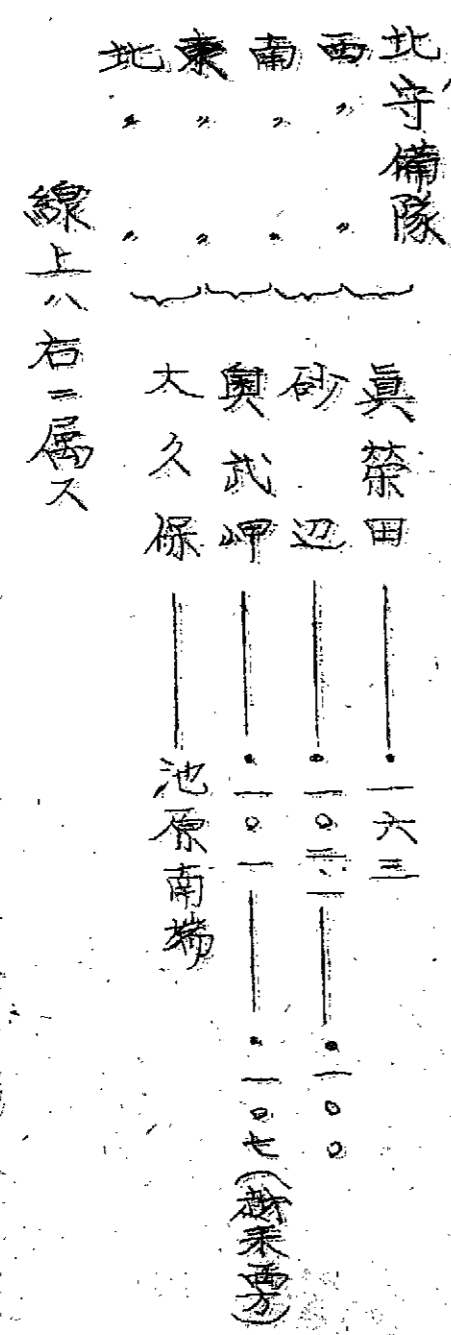 北守備隊
西〃〃
南〃〃
東〃〃
北〃〃
眞榮田――・一六三
砂辺――・一〇三・一――・一〇〇
奧武岬――・一〇一――・一〇七(越来西方)
大久保――池原南端
線上ハ右ニ属ス